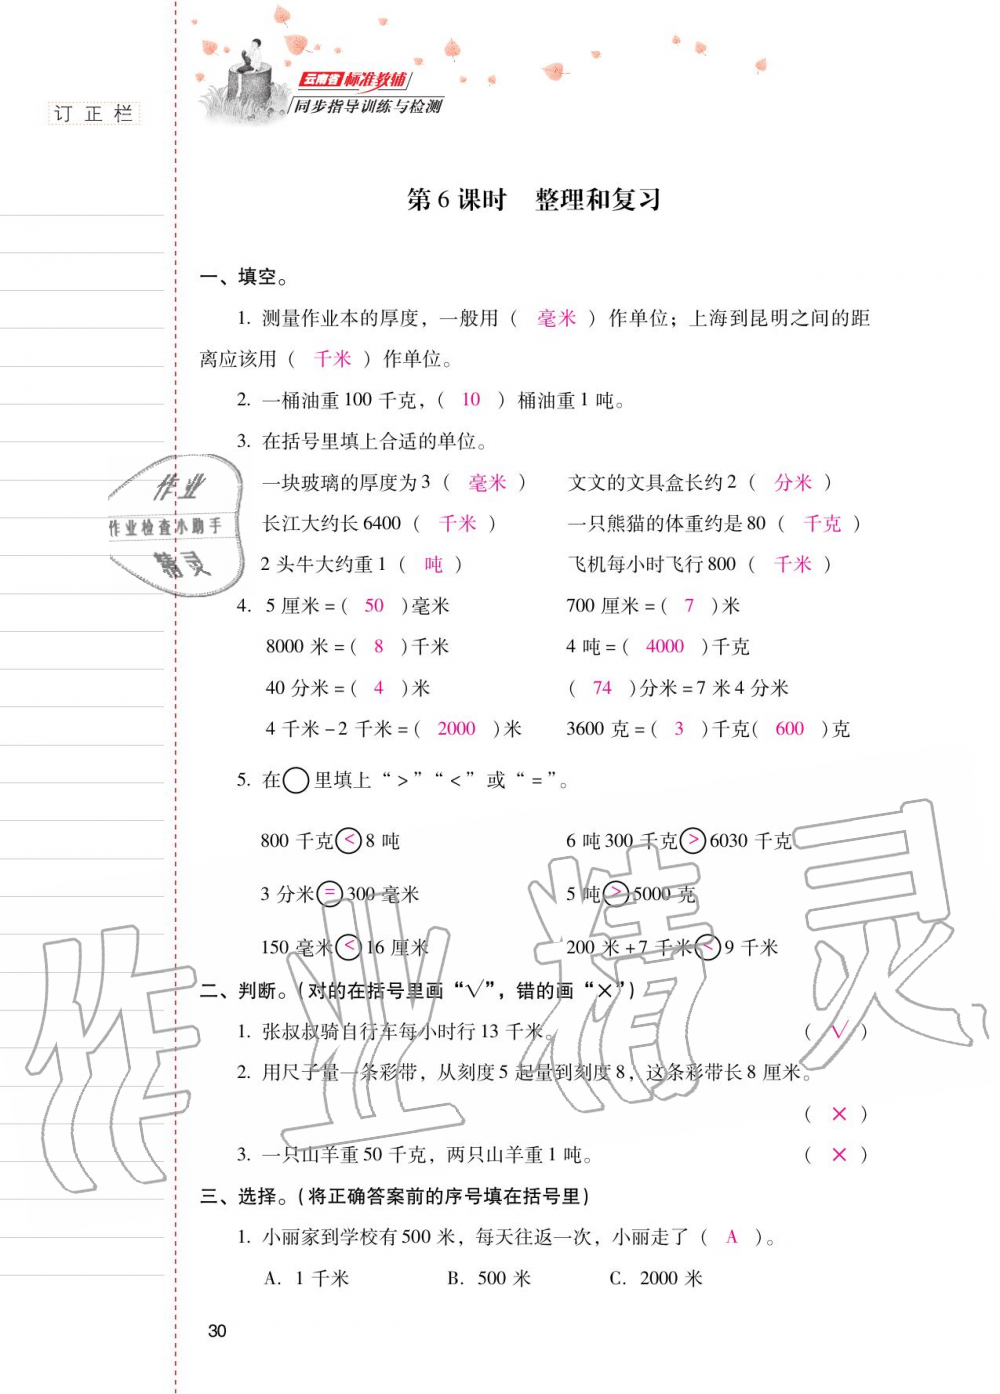 订 正 栏
云南省 标准教辅
同步指导训练与检测
第 6 课时 整理和复习
一、填空。
1. 测量作业本的厚度，一般用（ 毫米 ）作单位；上海到昆明之间的距
离应该用（ 千米 ）作单位。
2. 一桶油重 100 千克，（ 10 ）桶油重 1 吨。
3. 在括号里填上合适的单位。
一块玻璃的厚度为 3（ 毫米 ） 文文的文具盒长约 2（ 分米 ）
长江大约长 6400（ 千米 ） 一只熊猫的体重约是 80（ 千克 ）
2 头牛大约重 1（ 吨 ） 飞机每小时飞行 800（ 千米 ）
4. 5 厘米 =( 50 )毫米 700 厘米 =( 7 )米
8000 米 =( 8 )千米 4 吨 =( 4000 )千克
40 分米 =( 4 )米 ( 74 )分米 = 7 米 4 分米
4 千米 - 2 千米 =( 2000 )米 3600 克 =( 3 )千克( 600 )克
5. 在○里填上“ > ”“ < ” 或“ = ”。
800 千克 < 8 吨 6 吨 300 千克 > 6030 千克
3 分米 = 300 毫米 5 吨 > 5000 克
150 毫米 < 16 厘米 200 米 + 7 千米 < 9 千米
二、判断。（对的在括号里画“√”，错的画“×”）
1. 张叔叔骑自行车每小时行 13 千米。 （ √ ）
2. 用尺子量一条彩带，从刻度 5 起量到刻度 8，这条彩带长 8 厘米。
（ × ）
3. 一只山羊重 50 千克，两只山羊重 1 吨。 （ × ）
三、选择。（将正确答案前的序号填在括号里）
1. 小丽家到学校有 500 米，每天往返一次，小丽走了（ A ）。
A. 1 千米 B. 500 米 C. 2000 米
30
作业
作业检查小助手
精灵
作业精灵